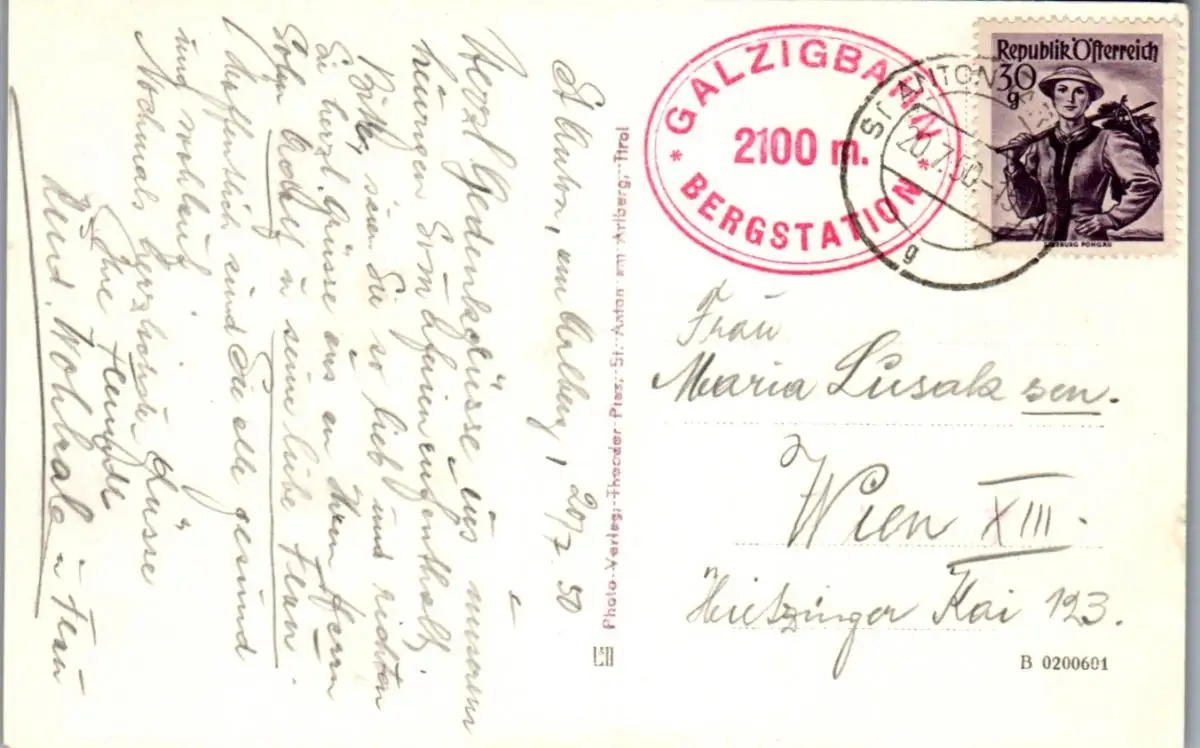 St Anton, am Arlberg, 20/7. 50
Herzl. Gedenkgrüsse aus unserem
heurigen Sommeraufenthalt,
Bitte, seien Sie so lieb und richten
Sie herzl. Grüsse aus an Ihren Herrn
Sohn u seine liebe Frau.
Hoffentlich sind Sie alle gesund
und wohlauf
Nochmals herzliche Grüsse
Ihre Freunde
u Frau
Photo-Verlag: Theodor Plas, St. Anton am Arlberg, Tirol
GALZIGBAHN
2100 m.
BERGSTATION
ST. ANTON
20.7.50.
g
Republik Österreich
30
g
SALZBURG PONGAU
Frau
Maria Lusak sen.
Wien XIII.
Hietzinger Kai 123.
B 0200601